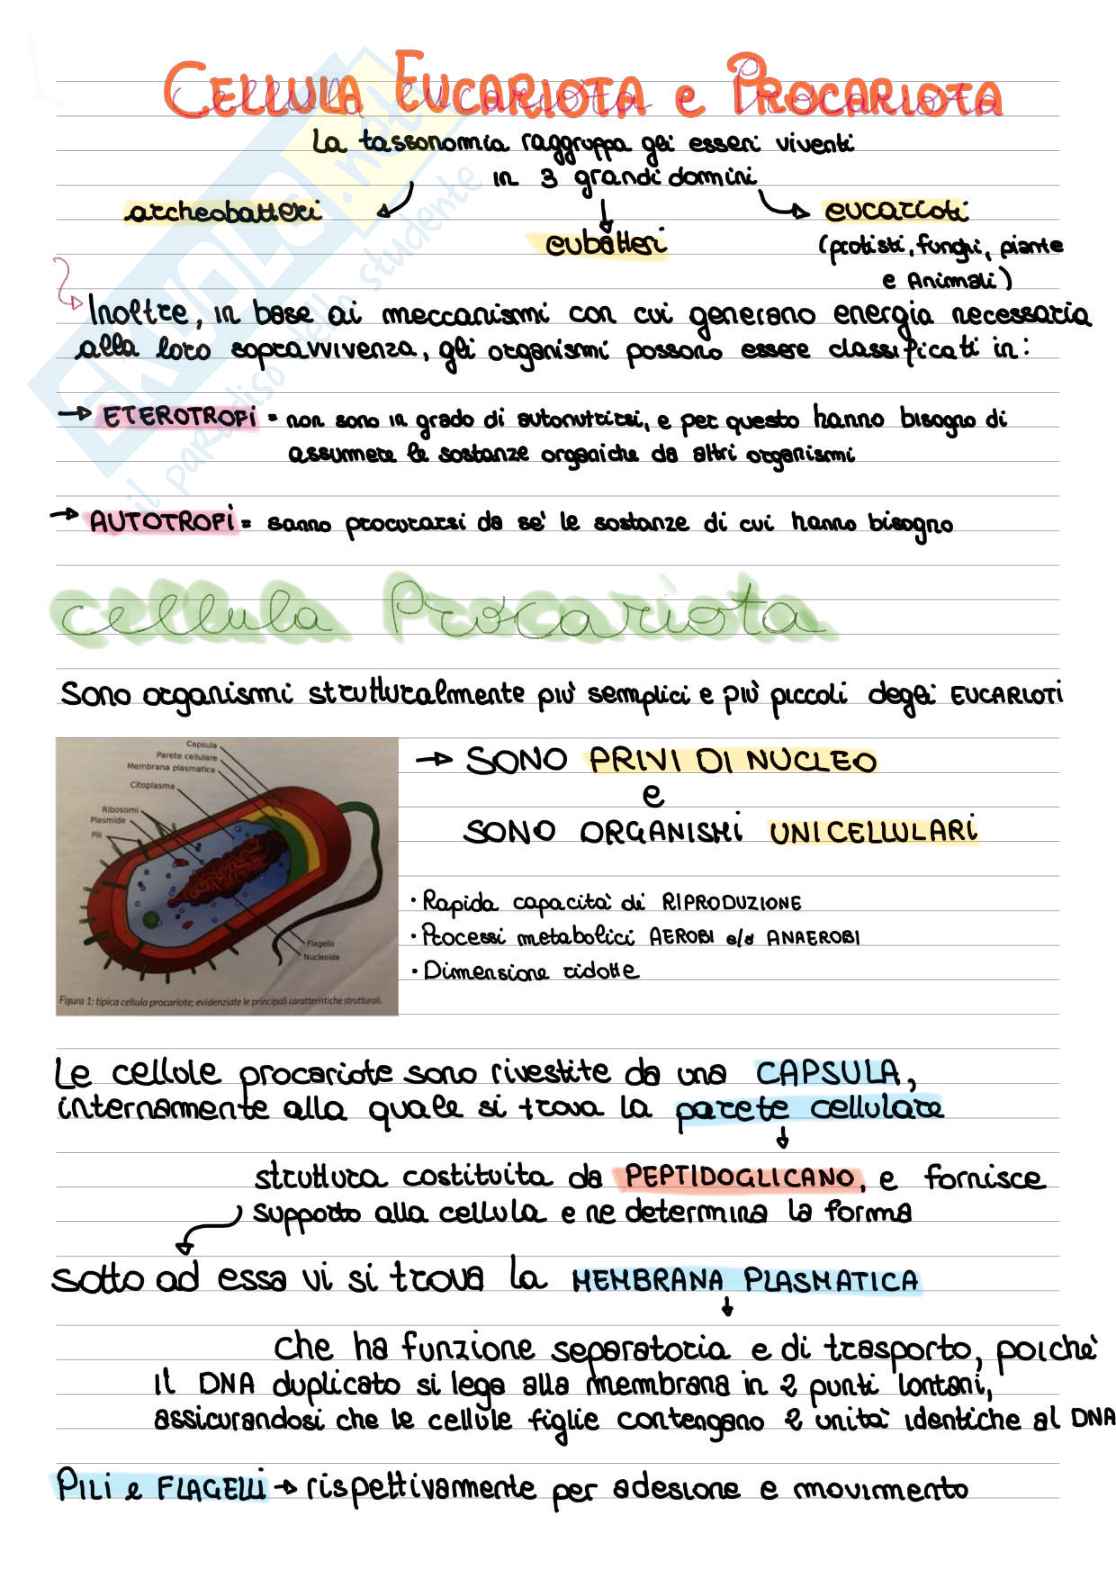 CELLULA EUCARIOTA e PROCARIOTA
La tassonomia raggruppa gli esseri viventi
in 3 grandi domini
archeobatteri
eubatteri
eucarioti
(protisti, funghi, piante
e Animali)
Inoltre, in base ai meccanismi con cui generano energia necessaria
alla loro sopravvivenza, gli organismi possono essere classificati in:
→ ETEROTROFI = non sono in grado di autonutrirsi, e per questo hanno bisogno di
assumere le sostanze organiche da altri organismi
→ AUTOTROFI = sanno procurarsi da se' le sostanze di cui hanno bisogno
cellula Procariota
Sono organismi strutturalmente piu' semplici e piu' piccoli degli EUCARIOTI
→ SONO PRIVI DI NUCLEO
e
SONO ORGANISMI UNICELLULARI
Capsula
Parete cellulare
Membrana plasmatica
Citoplasma
Ribosomi
Plasmide
Pili
Flagello
Nucleoide
Figura 1: tipica cellula procariote; evidenziate le principali caratteristiche strutturali.
• Rapida capacita' di RIPRODUZIONE
• Processi metabolici AEROBI e/o ANAEROBI
• Dimensione ridotte
Le cellule procariote sono rivestite da una CAPSULA,
internamente alla quale si trova la parete cellulare
struttura costituita da PEPTIDOGLICANO, e fornisce
supporto alla cellula e ne determina la forma
Sotto ad essa vi si trova la MEMBRANA PLASMATICA
che ha funzione separatoria e di trasporto, poiche'
il DNA duplicato si lega alla membrana in 2 punti lontani,
assicurandosi che le cellule figlie contengano 2 unita' identiche al DNA
PILI e FLAGELLI → rispettivamente per adesione e movimento
SKUOLA.net
il paradiso dello studente